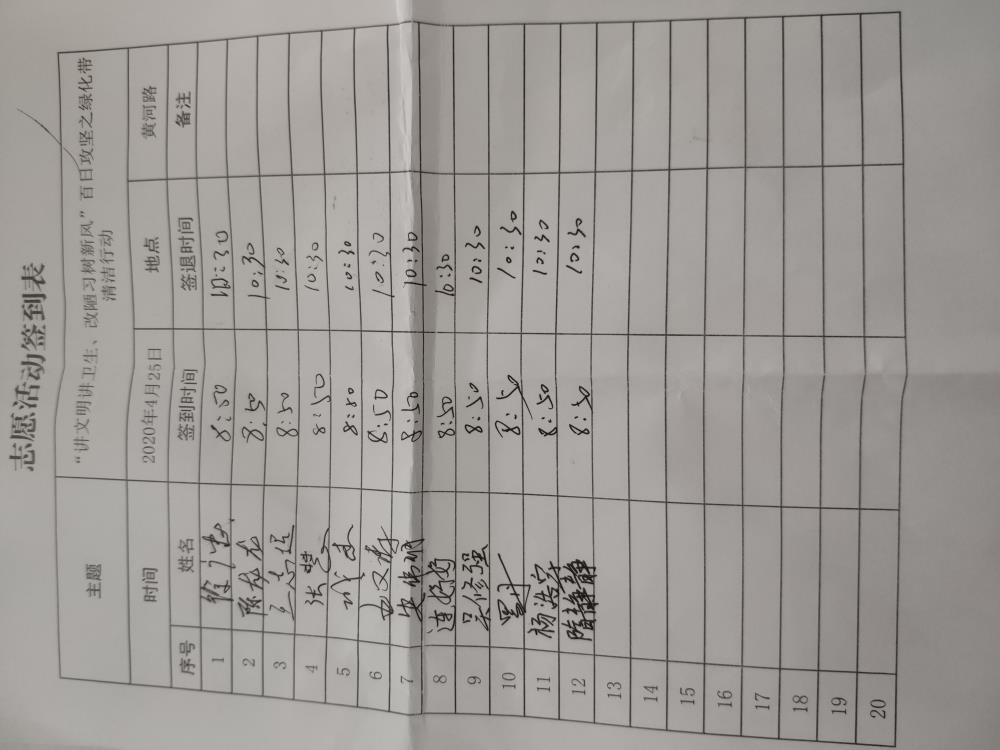 志愿活动签到表
主题 “讲文明讲卫生、改陋习树新风”百日攻坚之绿化带
清洁行动
时间 2020年4月25日 地点 黄河路
序号 姓名 签到时间 签退时间 备注
1 8:50 10:30
2 陈龙龙 8:50 10:30
3 8:50 10:30
4 张 8:50 10:30
5 8:50 10:30
6 8:50 10:30
7 8:50 10:30
8 连婷婷 8:50 10:30
9 吴修强 8:50 10:30
10 8:50 10:30
11 杨浩宇 8:50 10:30
12 隋静静 8:50 10:30
13
14
15
16
17
18
19
20